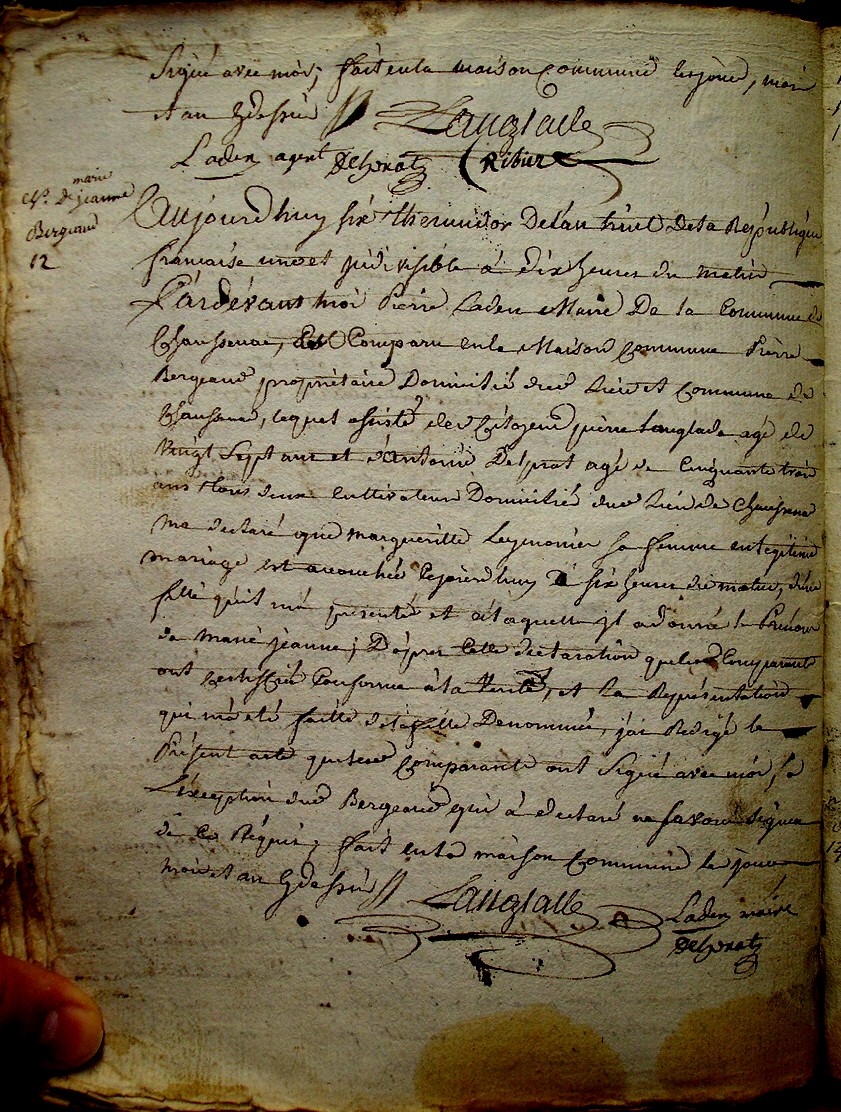 Signé avec moi; fait en la maison Commune les jour, mois
et an q dessus
Langlade
Laden agent Delprat Ribier
marie
Nce. de jeanne
Bergeaud
12
Aujourdhuy six thermidor De lan huit De la Republique
francaise une et jndivisible à dix heures du matin
Pardevant moi Pierre Laden Maire De la Commune de
Chaussenac, Est Comparu en la Maison Commune Pierre
Bergeaud propriétaire Domicilié dud Lieu et Commune de
Chaussenac, lequel assisté des Citoyens pierre Langlade agé de
vingt sept ans et d'antoine Delprat agé de Cinquante trois
ans tous deux Cultivateurs Domiciliés dud Lieu de Chaussenac
ma declaré que margueritte Leymonier sa femme en legitime
mariage est accouchée Cejourdhuy à six heures du matin, dune
fille quil ma presenté et a laquelle jl a donné le Prénom
de marie jeanne; Dapres Cette declaration que les Comparants
ont Certiffiée Conforme à la Verité, et la Représentation
qui ma eté faitte de la fille Denommée, j'ai Redigé le
Présent acte que lesd Comparants ont Signé avec moi, a
L'exception dud Bergeaud qui à declaré ne savoir signer
de Ce Réquis, fait en la maison Commune les jour
mois et an q dessus
Langlade Laden maire
Delprat